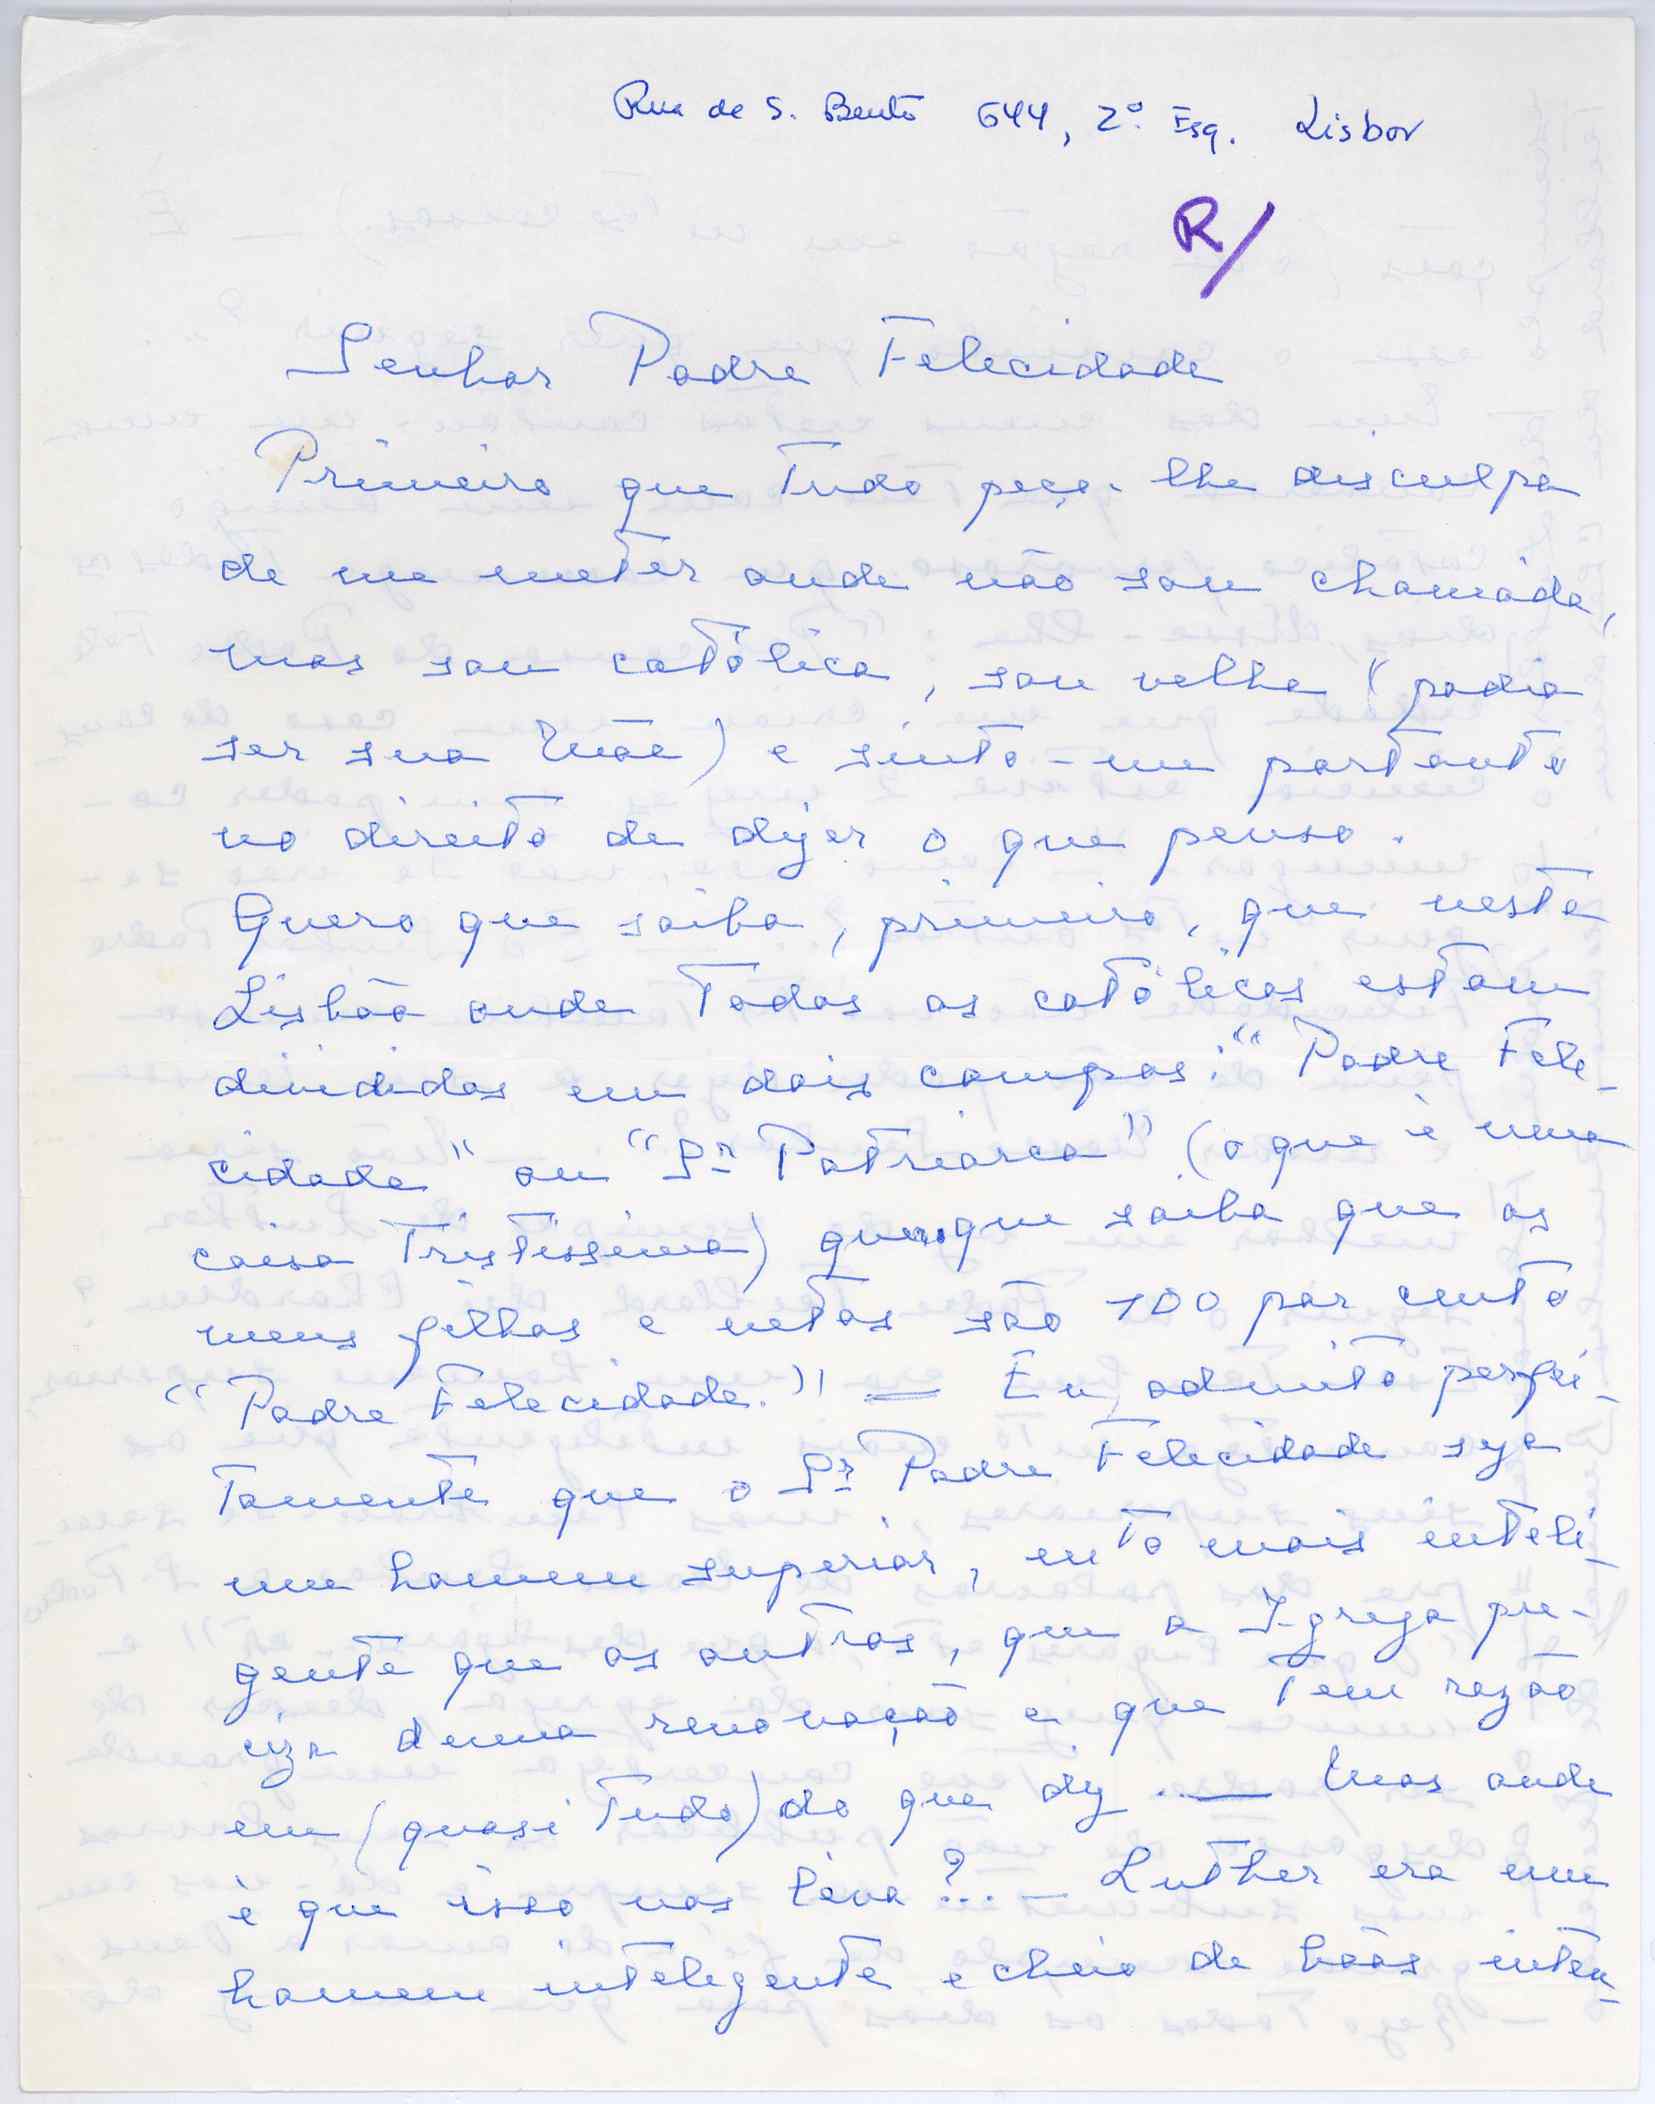 Rua de S. Bento 644, 2º. Esq. Lisboa
R/
Senhor Padre Felecidade
Primeiro que tudo peço-lhe disculpa
de me meter onde não sou chamada,
mas sou católica, sou velha (podia
ser sua Mãe) e sinto-me portanto
no direito de dizer o que penso.
Quero que saiba, primeiro, que nesta
Lisbôa onde todos os católicos estam
divididos em dois campos: "Padre Fele-
cidade" ou "Sr Patriarca" (o que è uma
coisa tristissima) quero que saiba que os
meus filhos e netos são 100 por cento
"Padre Felecidade." — Eu, admito perfei-
tamente que o Sr Padre Felecidade seja
um homem superior, mto mais inteli-
gente que os outros, que a Igreja pre-
ciza duma renovação e que tem razão
em (quasi tudo) do que diz. — Mas onde
è que isso nos leva?.. — Luther era um
homem inteligente e cheio de bôas inten-